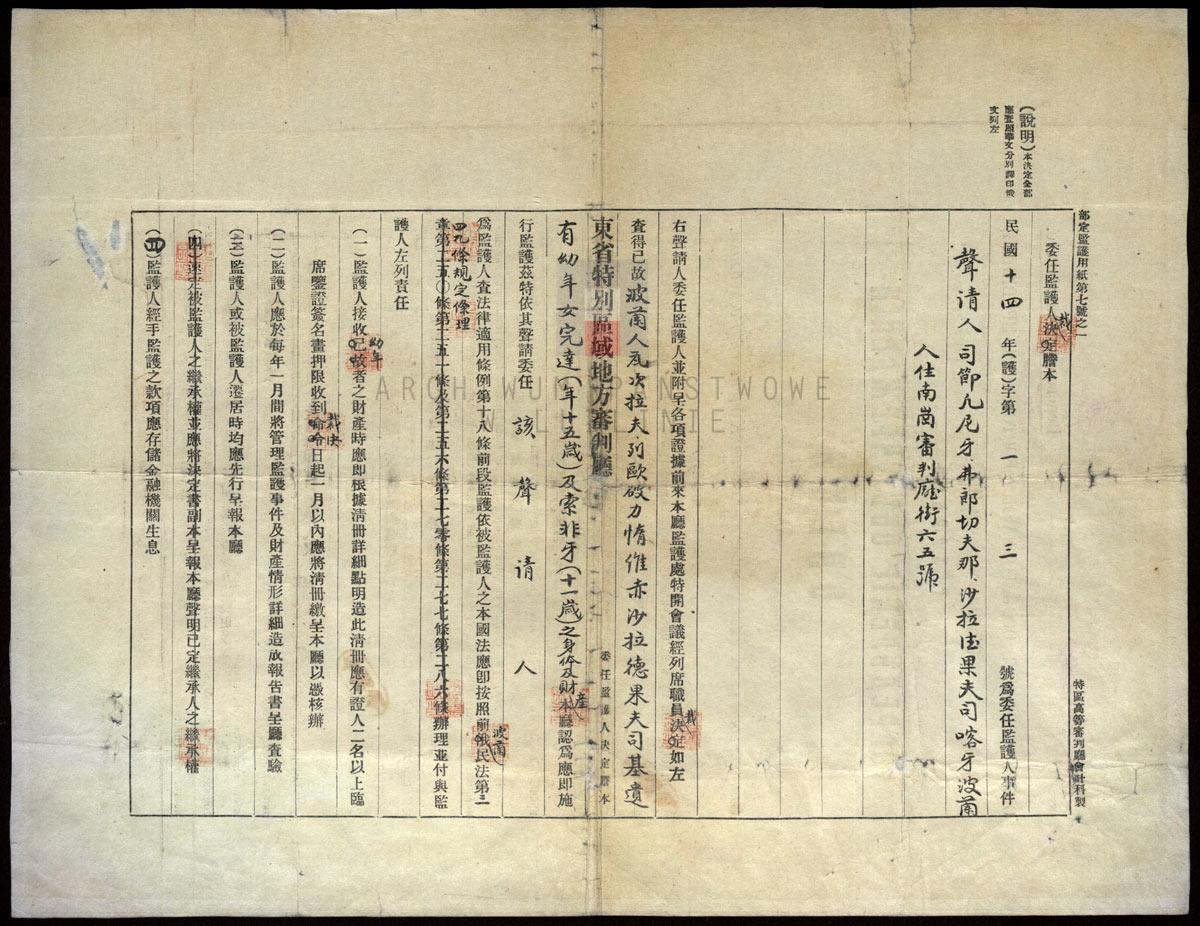 (說明)本決定全部
應查照華文分別譯印俄
文列左
部定監護用紙第七號之一
特區高等審判廳會計科製
委任監護人裁決謄本
民國十四年(護)字第一三號為委任監護人事件
聲請人司節凡尼牙弗郎切夫那、沙拉德果夫司喀牙波蘭
人住南崗審判廳街六五號
右聲請人委任監護人並附呈各項證據前來本廳監護處特開會議經列席職員裁決如左
查得已故波蘭人瓦次拉夫、列歐破力惰維赤沙拉德果夫司基遺
東省特別區域地方審判廳
委任監護人決定謄本
有幼年女完達(年十五歲)及索非牙(十一歲)之身份及財產本廳認為應即施
行監護茲特依其聲請委任該聲請人
為監護人查法律適用條例第十八條前段監護依被監護人之本國法應即按照前波蘭民法第二
四九條規定條理
章第二五〇條第二五一條及第二五六條第二七零條第二七七條第二八六條辦理並付與監
護人左列責任
(一)監護人接收幼年者之財產時應即根據清冊詳細點明造此清冊應有證人二名以上臨
席鑒證簽名畫押限收到裁決日起一月以內應將清冊繳呈本廳以憑核辦
(二)監護人應於每年一月間將管理監護事件及財產情形詳細造放報告書呈廳查驗
(三)監護人或被監護人遷居時均應先行呈報本廳
(四)速定被監護人之繼承權並應將決定書副本呈報本廳聲明已定繼承人之繼承權
(四)監護人經手監護之款項應存儲金融機關生息
ARCHIWUM PAŃSTWOWE
W LUBLINIE